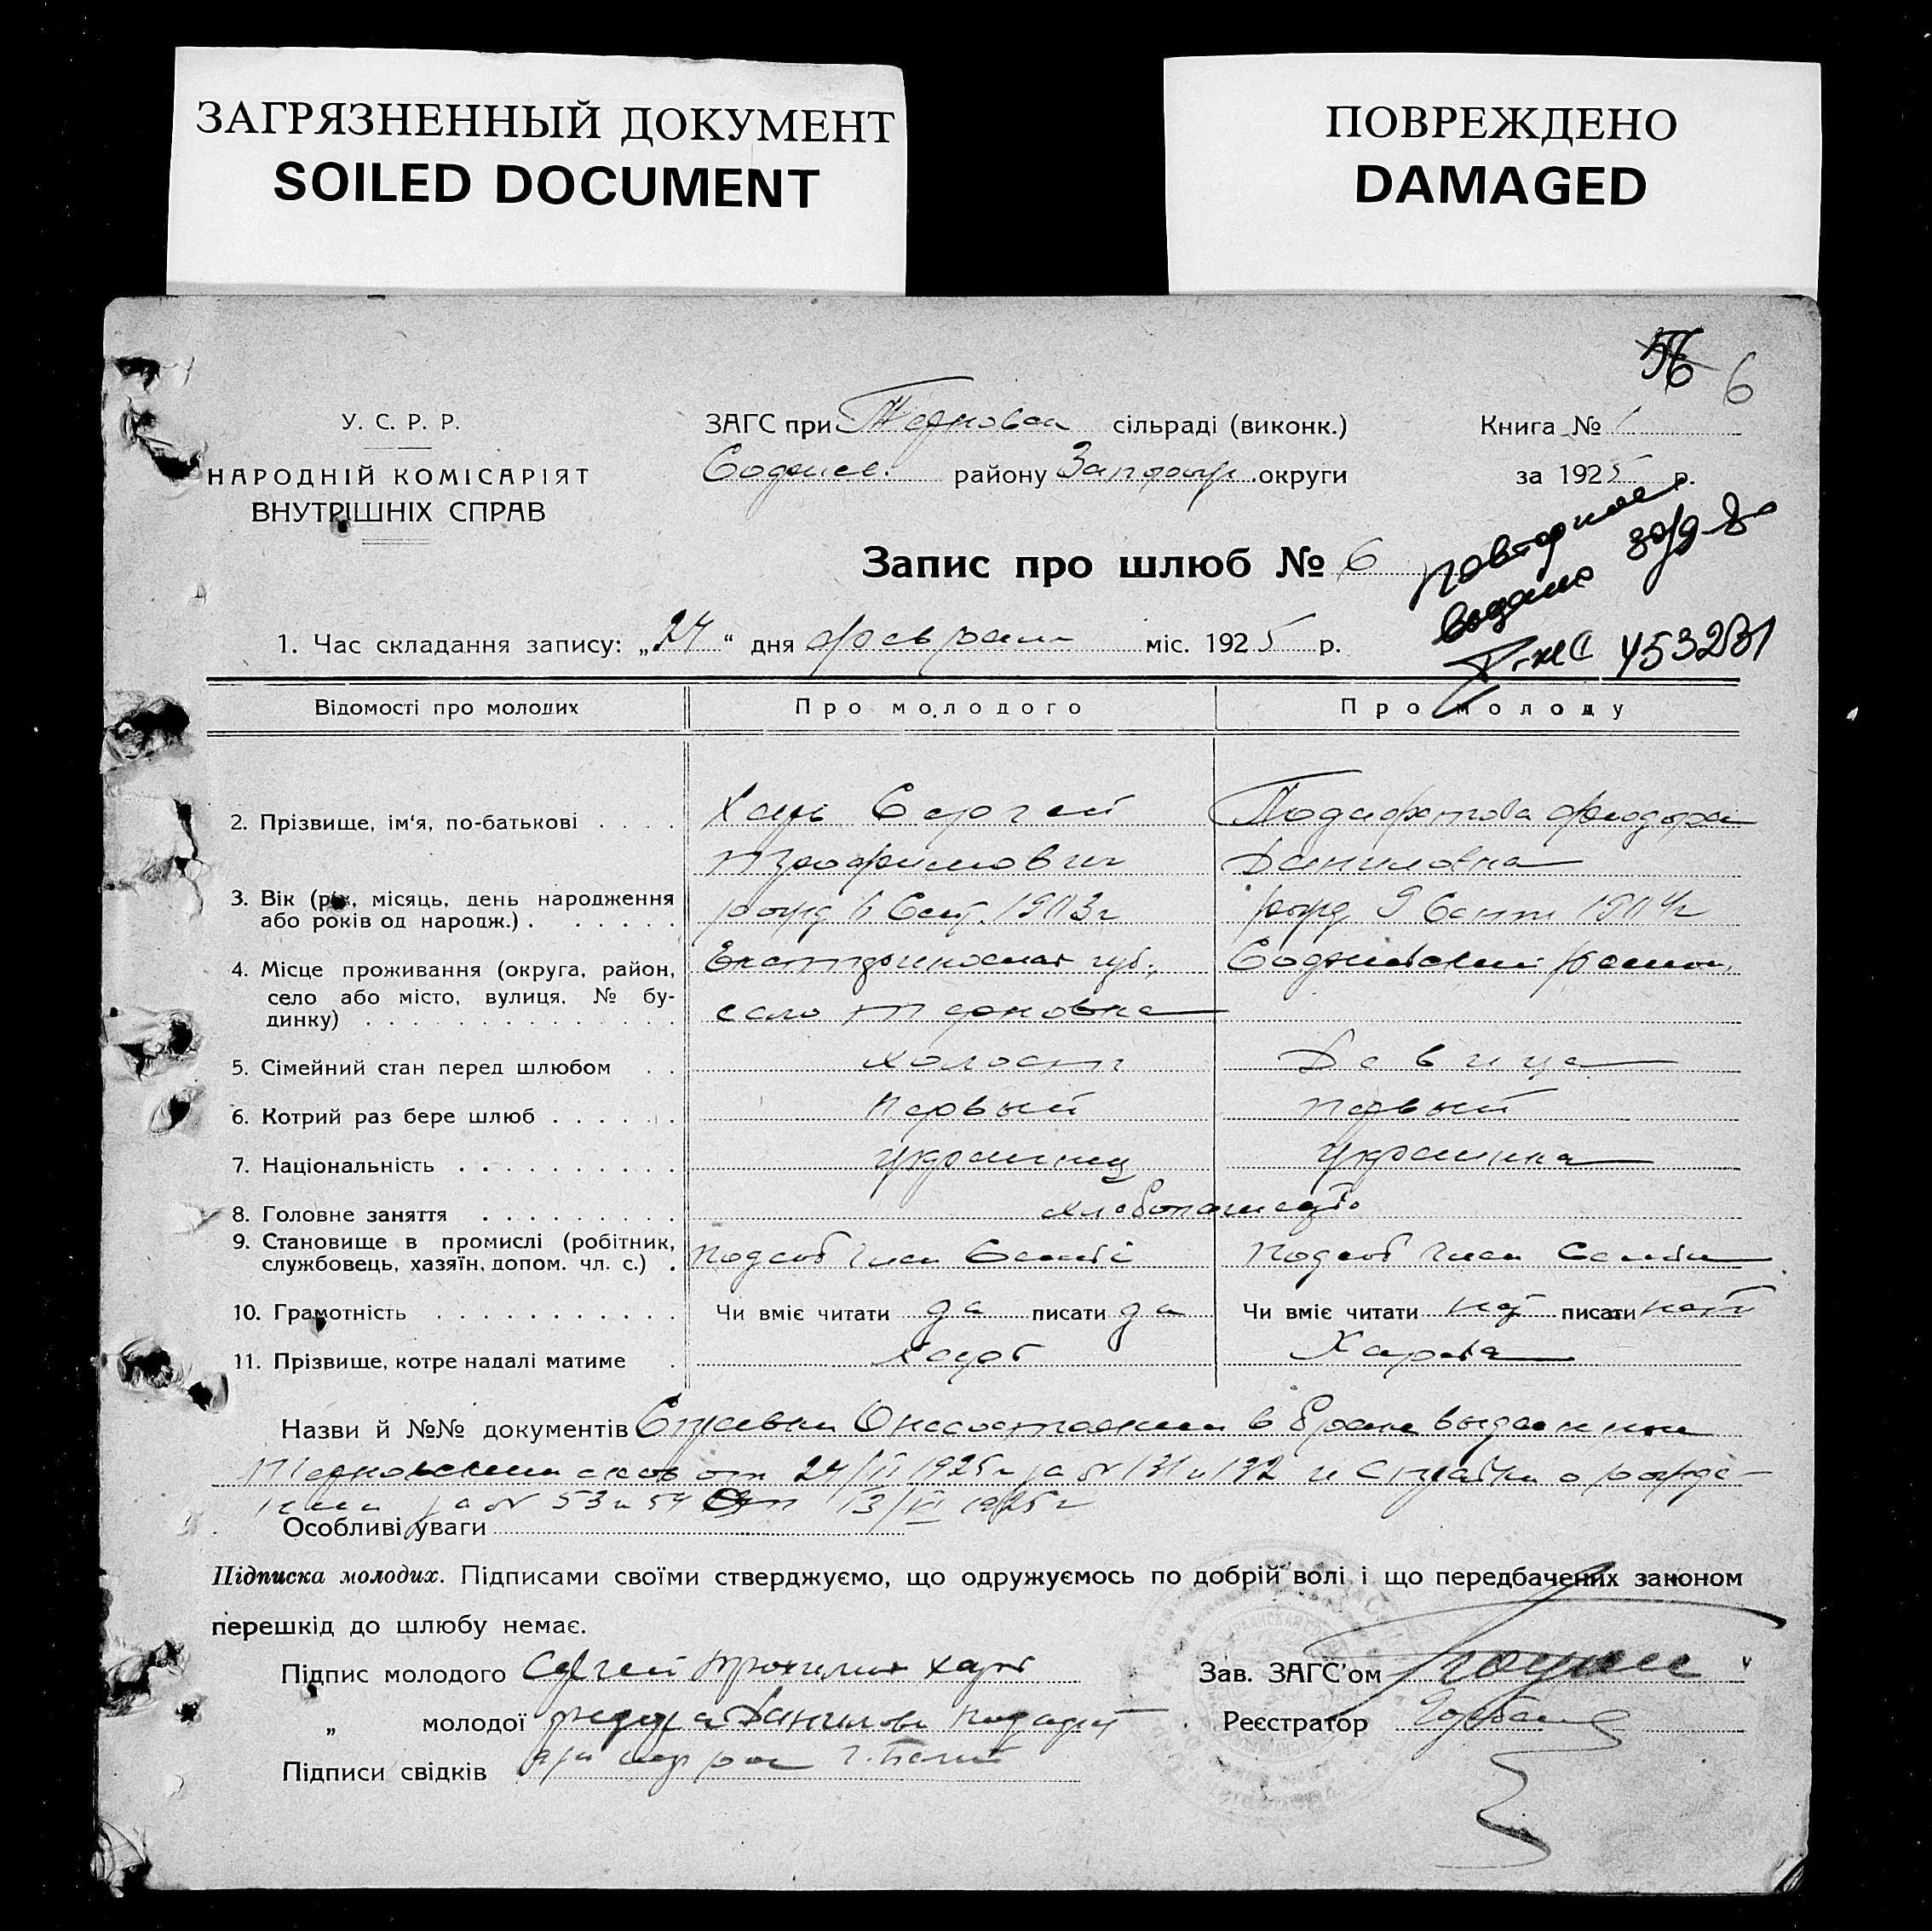 ЗАГРЯЗНЕННЫЙ ДОКУМЕНТ
SOILED DOCUMENT
ПОВРЕЖДЕНО
DAMAGED
6
У. С. Р. Р.
НАРОДНІЙ КОМІСАРІЯТ
ВНУТРІШНІХ СПРАВ
ЗАГС при Терновск сільраді (виконк.)
району Запорож. округи
Книга № 1
за 1925 р.
Запис про шлюб № 6
повторное
выдано
1. Час складання запису: „24“ дня февраля міс. 1925 р.
Відомості про молодих
Про молодого
Про молоду
2. Прізвище, ім'я, по-батькові . . . .
Харь Сергей
Трофимович
Феодора
Даниловна
3. Вік (рік, місяць, день народження
або років од народж.) . . . . . .
1903 г
рожд 9 Сент 1904 г
4. Місце проживання (округа, район,
село або місто, вулиця, № бу-
динку) . . . . . . . . . . . . . .
Екатеринослав губ.,
село Терновка
5. Сімейний стан перед шлюбом . .
холост
Девица
6. Котрий раз бере шлюб . . . . . .
первый
первый
7. Національність . . . . . . . . . .
украинец
украинка
8. Головне заняття . . . . . . . . .
хлебопашество
9. Становище в промислі (робітник,
службовець, хазяїн, допом. чл. с.) .
подсоб член Семьи
подсоб член Семьи
10. Грамотність . . . . . . . . . . .
Чи вміє читати да писати да
Чи вміє читати нет писати нет
11. Прізвище, котре надалі матиме .
Харь
Назви й №№ документів Справки О несостоянии в браке выданные
Терновским от 24/II 1925 г за № 131 и 132 и Справки о рожде-
нии за № 53 и 54 от 13/VI 1925 г
Особливі уваги
Підписка молодих. Підписами своїми стверджуємо, що одружуємось по добрій волі і що передбачених законом
перешкід до шлюбу немає.
Підпис молодого Сергей Харь
„ молодої Данилова
Підписи свідків
Зав. ЗАГС'ом
Реєстратор